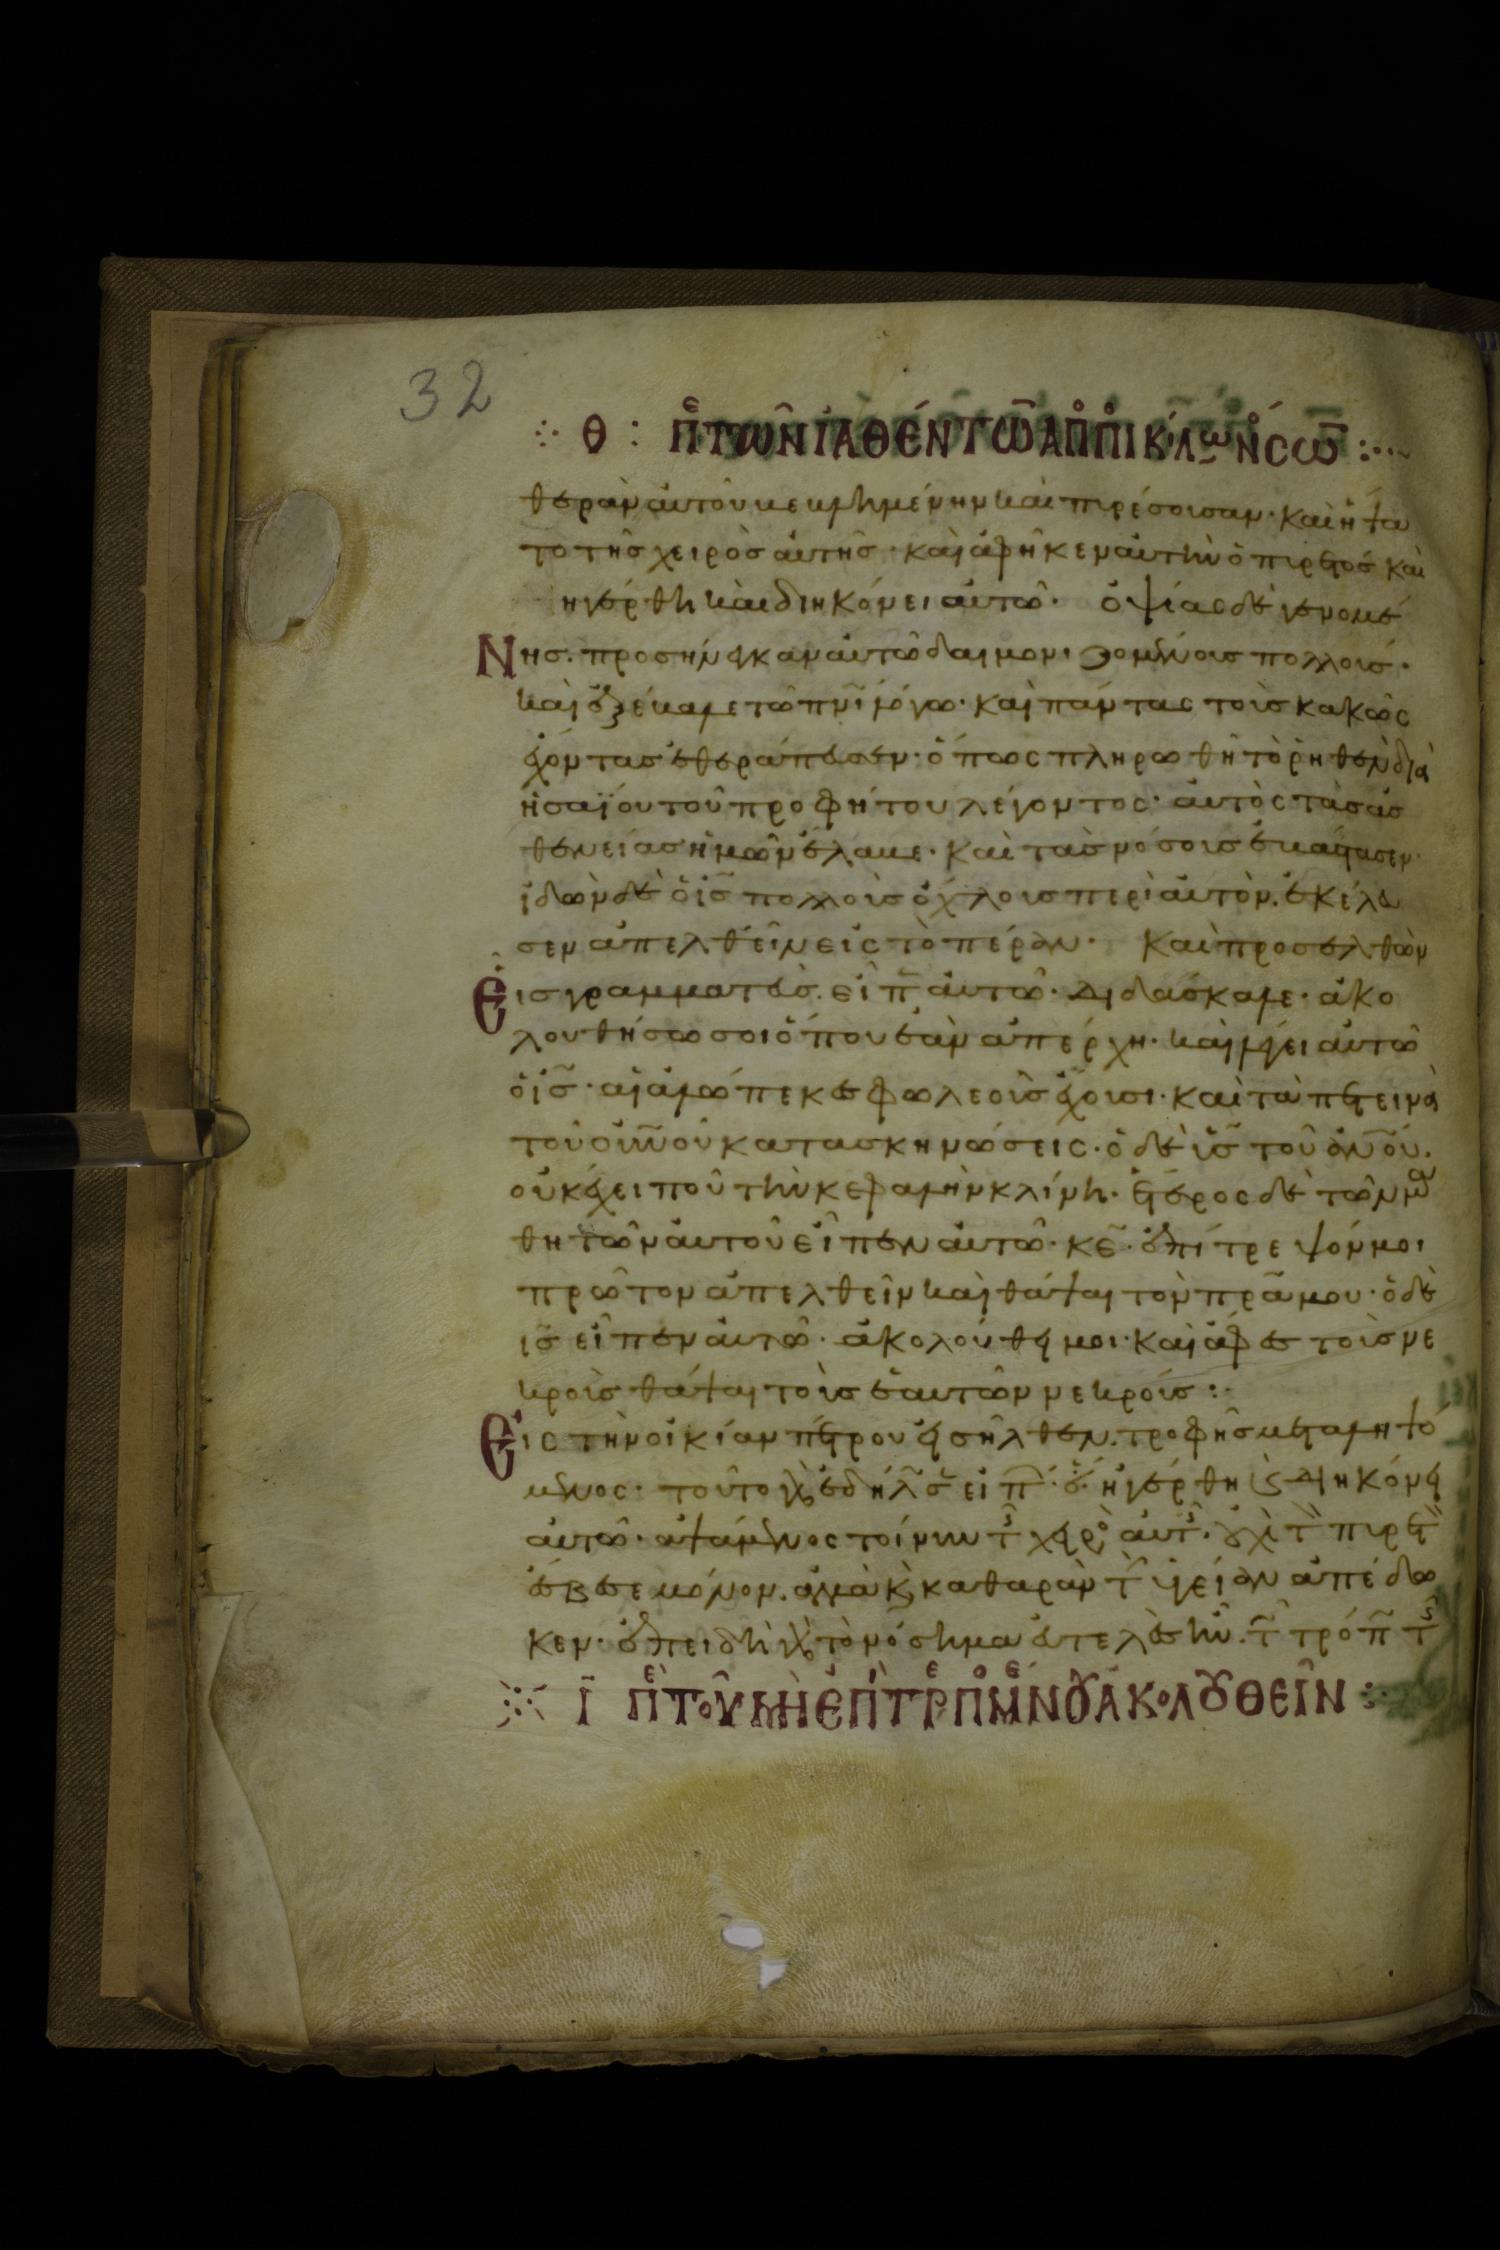 32
θ : πε τῶν ἰαθέντων ἀπὸ ποικίλων νόσων :
θεραν αὐτοῦ βεβλημένην καὶ πυρέσσουσαν· καὶ ἥψα
το τῆς χειρὸς αὐτῆς· καὶ ἀφῆκεν αὐτὴν ὁ πυρετός καὶ
ηγέρθη καὶ διηκόνει αὐτῶ· ὀψίας δὲ γενομέ
νησ· προσήνεγκαν αὐτῶ δαιμονιζομένους πολλούς·
καὶ ἐξέβαλε τῶ πνι λόγω· καὶ πάντας τοὺς κακῶς
ἔχοντας ἐθεράπευσεν· ὅπως πληρωθῆ τὸ ῥηθὲν διὰ
ἡσαΐου τοῦ προφήτου λέγοντος· αὐτὸς τὰς ἀσ
θενείας ἡμῶν ἔλαβε· καὶ τὰς νόσους ἐβάστασεν·
ἰδὼν δὲ ὁ ις πολλοὺς ὄχλους περὶ αὐτὸν· ἐκέλευ
σεν ἀπελθεῖν εἰς τὸ πέραν· καὶ προσελθὼν
εἷς γραμματεὺς· εἶπ αὐτῶ· διδάσκαλε· ἀκο
λουθήσω σοι ὅπου ἐὰν ἀπέρχη· καὶ λέγει αὐτῶ
ὁ ις· αἱ ἀλώπεκες φωλεοὺς ἔχουσι· καὶ τὰ πετεινὰ
τοῦ ουνου κατασκηνώσεις· ὁ δὲ υς τοῦ ανου·
οὐκ ἔχει ποῦ τὴν κεφαλὴν κλίνη· ἕτερος δὲ τῶν μα
θητῶν αὐτοῦ εἶπεν αὐτῶ· κε· ἐπίτρεψόν μοι
πρῶτον ἀπελθεῖν καὶ θάψαι τὸν πρα μου· ὁ δὲ
ις εἶπεν αὐτῶ· ἀκολούθει μοι· καὶ ἄφες τοὺς νε
κροὺς θάψαι τοὺς ἑαυτῶν νεκρούς :
Εἰς τὴν οἰκίαν πέτρου εἰσῆλθεν· τροφῆς μεταληψό
μενος· τοῦτο γὰρ ἐδήλσ εἰπ· ὅ ἠγέρθη καὶ διηκόνει
αὐτῶ· ἁψάμενος τοίνυν τ χειρ αὐτ· οὐχὶ τ πυρετ
ἔσβεσε μόνον· ἀλλὰ καὶ καθαρὰν τ ὑγείαν ἀπέδω
κεν· ἐπειδὴ γὰρ τὸ νόσημα εὐτελὲς ἦν· τ τρόπ τ
ι πε τοῦ μὴ ἐπιτρεπομένου ἀκολουθεῖν :